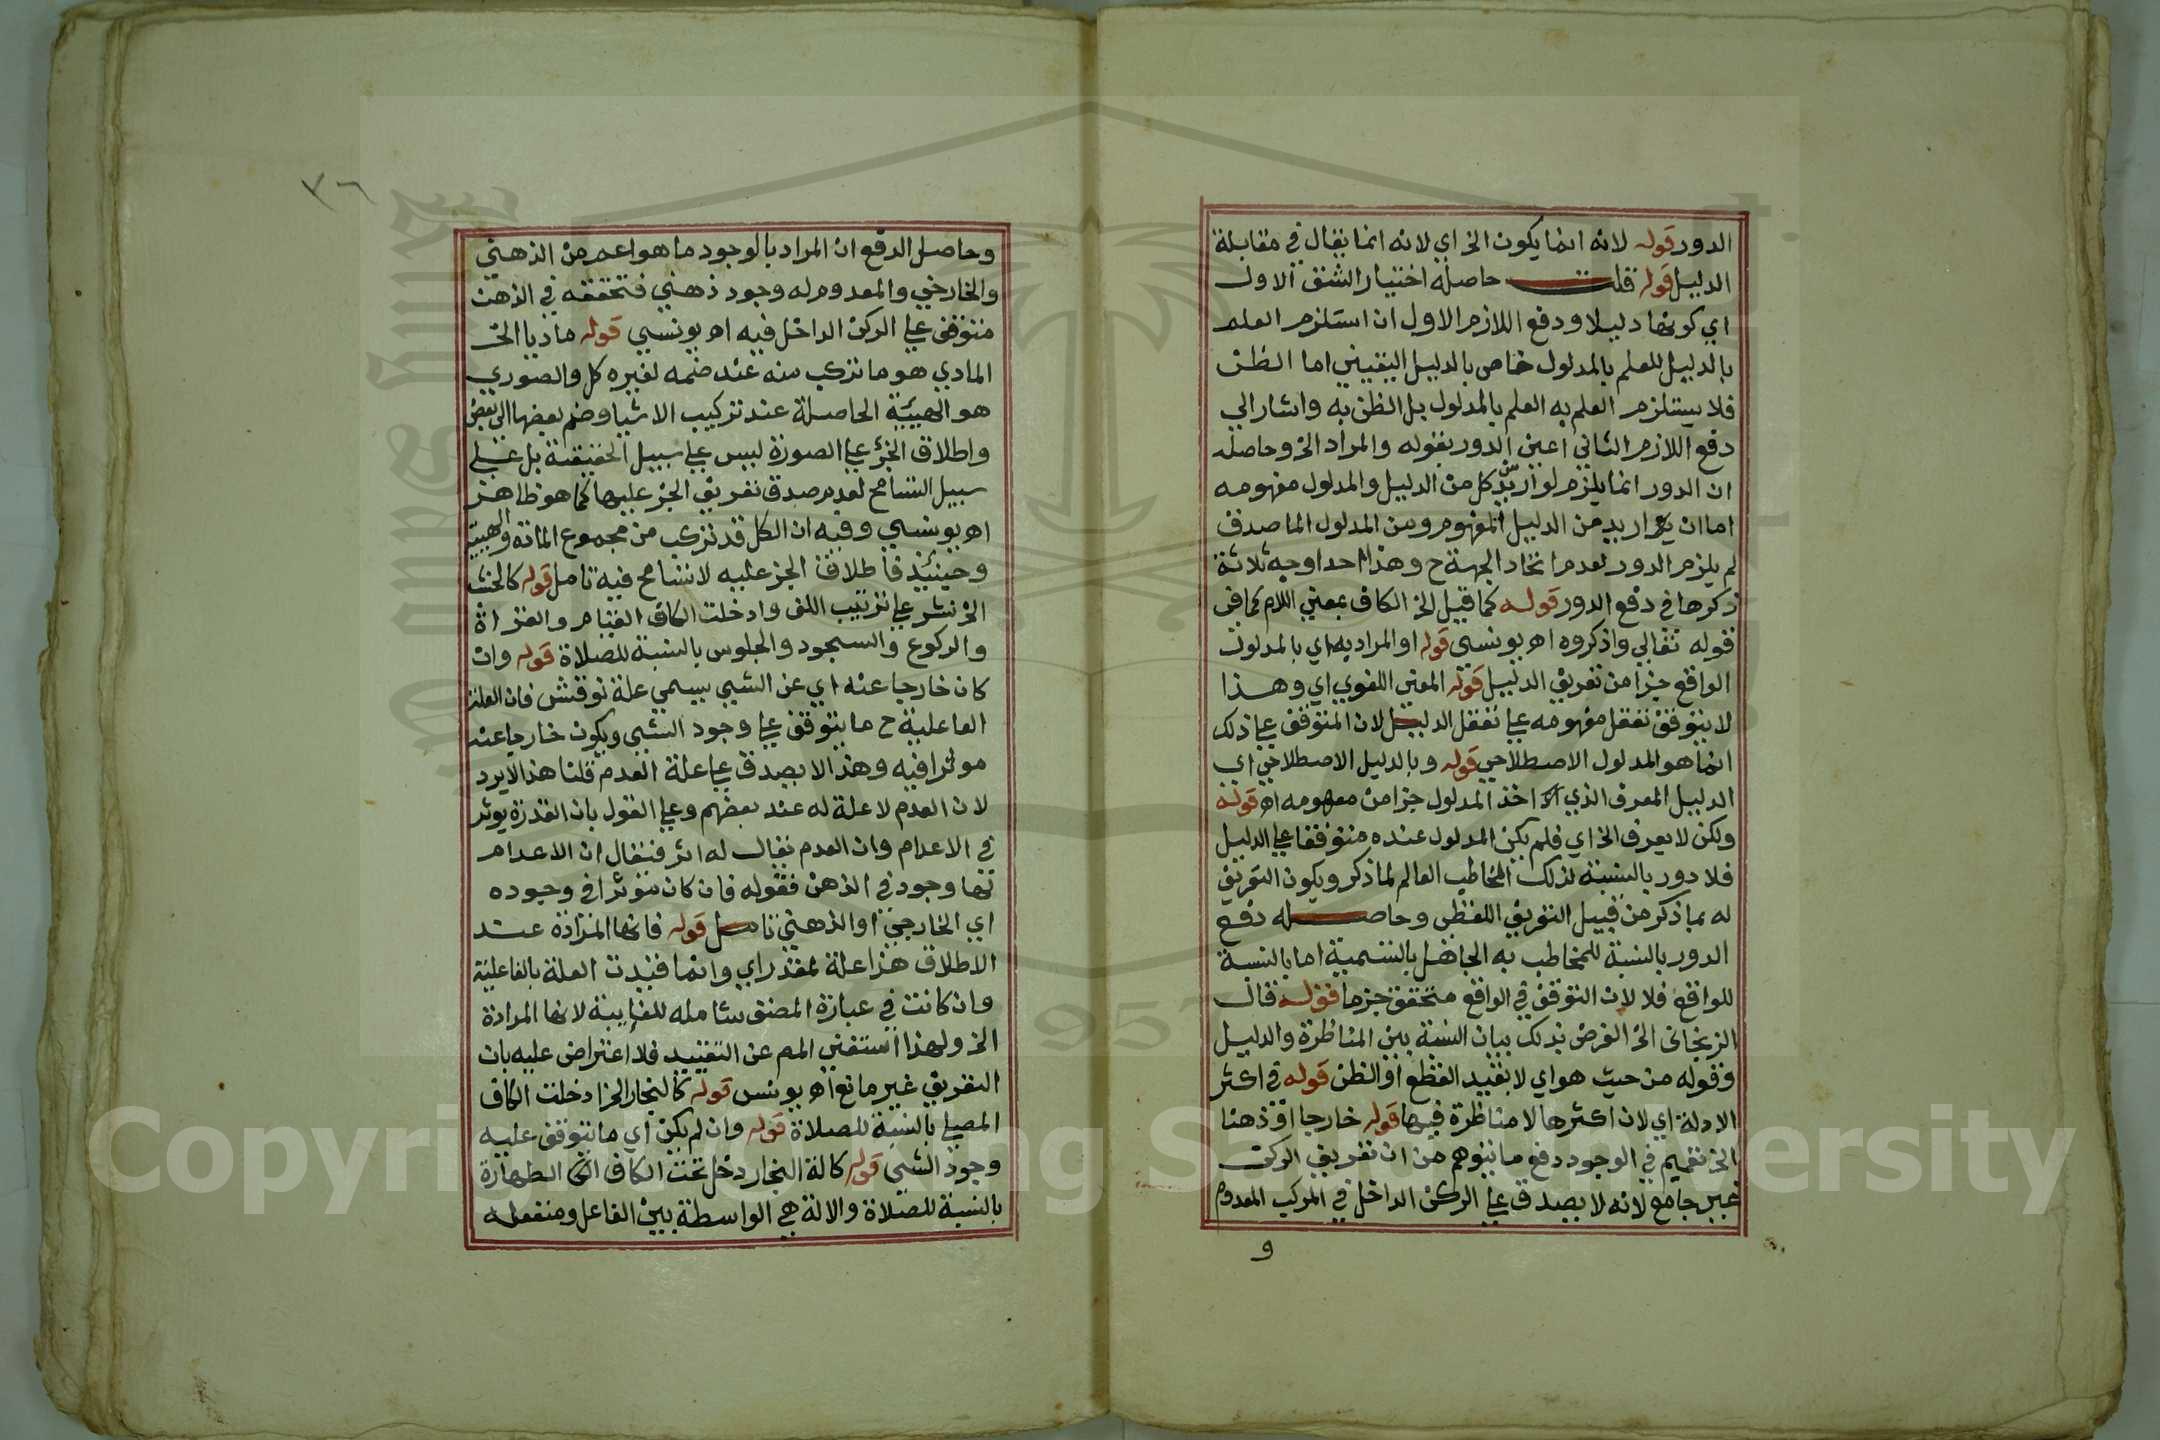 الدور قوله لانه انما يكون الخ اي لانه انما يقال في مقابلة
الدليل قوله قلت حاصله اختيار الشق الاول
اي كونها دليلا ودفع اللازم الاول ان استلزم العلم
بالدليل للعلم بالمدلول خاص بالدليل اليقيني اما الظن
فلا يستلزم العلم به العلم بالمدلول بل الظن به واشار الي
دفع اللازم الثاني اعني الدور بقوله والمراد الخ وحاصله
ان الدور انما يلزم لو اريد من كل من الدليل والمدلول مفهومه
اما ان اريد من الدليل المفهوم ومن المدلول الماصدق
لم يلزم الدور لعدم اتحاد الجهة ح وهذا احد اوجه ثلاثة
ذكرها في دفع الدور قوله كما قيل الخ الكاف بمعني اللام كما في
قوله تعالي واذكروه اه يونسي قوله او المراد به اي بالمدلول
الواقع جزا من تعريف الدليل قوله المعني اللغوي اي وهذا
لا يتوقف تعقل مفهومه علي تعقل الدليل لان المتوقف علي ذلك
انما هو المدلول الاصطلاحي قوله وبالدليل الاصطلاحي اي
الدليل المعرف الذي اخذ المدلول جزا من مفهومه اه قوله
ولكن لا يعرف الخ اي فلم يكن المدلول عنده متوقفا علي الدليل
فلا دور بالنسبة لذلك المخاطب العالم لما ذكر ويكون التعريف
له بما ذكر من قبيل التعريف اللفظي وحاصله دفع
الدور بالنسبة للمخاطب به الجاهل بالتسمية اما بالنسبة
للواقع فلا لان التوقف في الواقع متحقق جزما قوله قال
الزنجاني الخ الغرض بذلك بيان النسبة بين المناظرة والدليل
وقوله من حيث هو اي لا بقيد القطع او الظن قوله في اكثر
الادلة اي لان اكثرها لا مناظرة فيها قوله خارجا او ذهنا
الخ تعميم في الوجود دفع ما يتوهم من ان تعريف الركن
غير جامع لانه لا يصدق علي الركن الداخل في المركب المعدوم
و
٣٦
وحاصل الدفع ان المراد بالوجود ما هو اعم من الذهني
والخارجي والمعدوم له وجود ذهني فتحققه في الذهن
متوقف علي الركن الداخل فيه اه يونسي قوله ماديا الخ
المادي هو ما تركب منه عند ضمه لغيره كل والصوري
هو الهيئة الحاصلة عند تركيب الاشيا وضم بعضها الي بعض
واطلاق الجزء علي الصورة ليس علي سبيل الحقيقة بل علي
سبيل التسامح لعدم صدق تعريف الجز عليها كما هو ظاهر
اه يونسي وفيه ان الكل قد تركب من مجموع المادة والهيئة
وحينئذ فاطلاق الجز عليه لا تسامح فيه تامل قوله كالخشب
الخ نشر علي ترتيب اللف وادخلت الكاف القيام والقراة
والركوع والسجود والجلوس بالنسبة للصلاة قوله وان
كان خارجا عنه اي عن الشيي يسمي علة نوقش فان العلة
الفاعلية ح ما يتوقف علي وجود الشيي ويكون خارجا عنه
موثرا فيه وهذا لا يصدق علي علة العدم قلنا هذا لا يرد
لان العدم لا علة له عند بعضهم وعلي القول بان القدرة يوثر
في الاعدام وان العدم يقال له اثر فنقال ان الاعدام
لها وجود في الذهن فقوله فان كان موثرا في وجوده
اي الخارجي او الذهني تامل قوله فانها المرادة عند
الاطلاق هذا علة لمقدر اي وانما قيدت العلة بالفاعلية
وان كانت في عبارة المصنف شاملة للغايية لانها المرادة
الخ ولهذا استغني المص عن التقييد فلا اعتراض عليه بان
التعريف غير مانع اه يونس قوله كالنجار الخ ادخلت الكاف
المصلي بالنسبة للصلاة قوله وان لم يكن اي ما يتوقف عليه
وجود الشيي قوله كالة النجار دخل تحت الكاف الطهارة
بالنسبة للصلاة والالة هي الواسطة بين الفاعل ومنفعله
Copyright © King Saud University